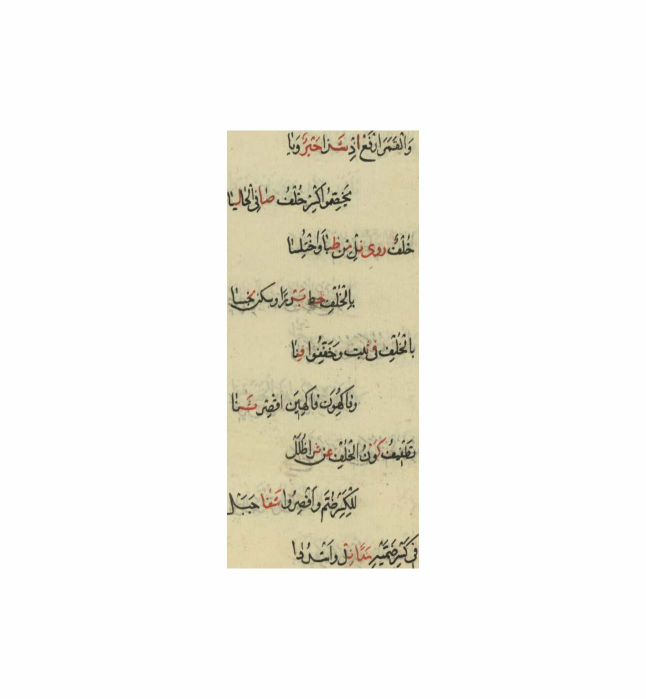 وَالْقَمَرَ ارْفَعْ اِذْ شَذَا حَبْرٌ وَيَا
يَخِصِّمُوا اكْسِرْ خُلْفُ صَافِي الْخَا لِيَا
خُلْفٌ رَوى نَلْ مِنْ ظُبًا وَاخْتَلِسَا
بِالْخُلْفِ حط بَدْرًا وسكن بخسا
بِالْخُلْفِ فى ثبت وَخَفَّفُوا فِنَا
وفاكِهُونَ فاكهِينَ اقْصِر ثَنَا
تَطْفِيفُ كَوْنُ الْخُلْفِ عن ثرا ظُلَلْ
لِلْكَسْرِ ضُمَّ وَاقْصِرُوا شَفَا جَبَلْ
فى كَسْرِ ضَمَّيْهِ مَدَا نل وَاشْدُدَا